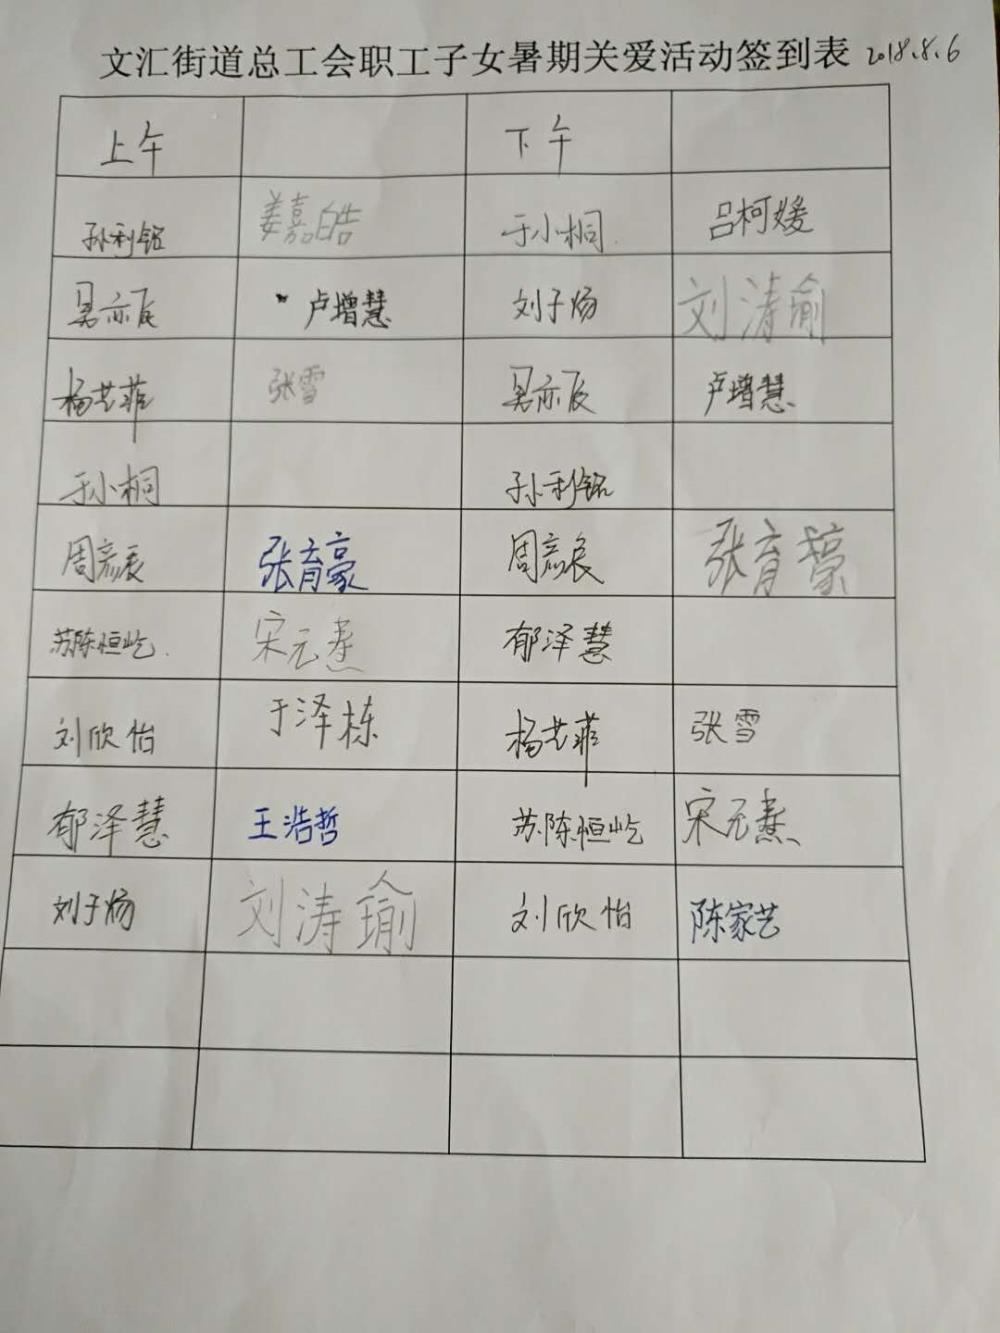 文汇街道总工会职工子女暑期关爱活动签到表 2018.8.6
上午 下午
孙利铭 姜嘉皓 于小桐 吕柯媛
吴亦辰 卢增慧 刘子炀 刘涛瑜
杨艺菲 张雪 吴亦辰 卢增慧
于小桐 孙利铭
周彦辰 张育豪 周彦辰 张育豪
苏陈恒屹 宋元熹 郁泽慧
刘欣怡 于泽栋 杨艺菲 张雪
郁泽慧 王浩哲 苏陈恒屹 宋元熹
刘子炀 刘涛瑜 刘欣怡 陈家艺